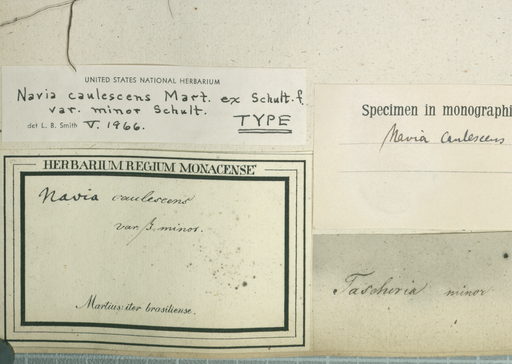 UNITED STATES NATIONAL HERBARIUM
Navia caulescens Mart. ex Schult. f.
var. minor Schult.
det L. B. Smith V. 1966.
TYPE
HERBARIUM REGIUM MONACENSE
Navia caulescens
var. β. minor.
Martius: iter brasiliense.
Specimen in monographi
Navia caulescens
minor